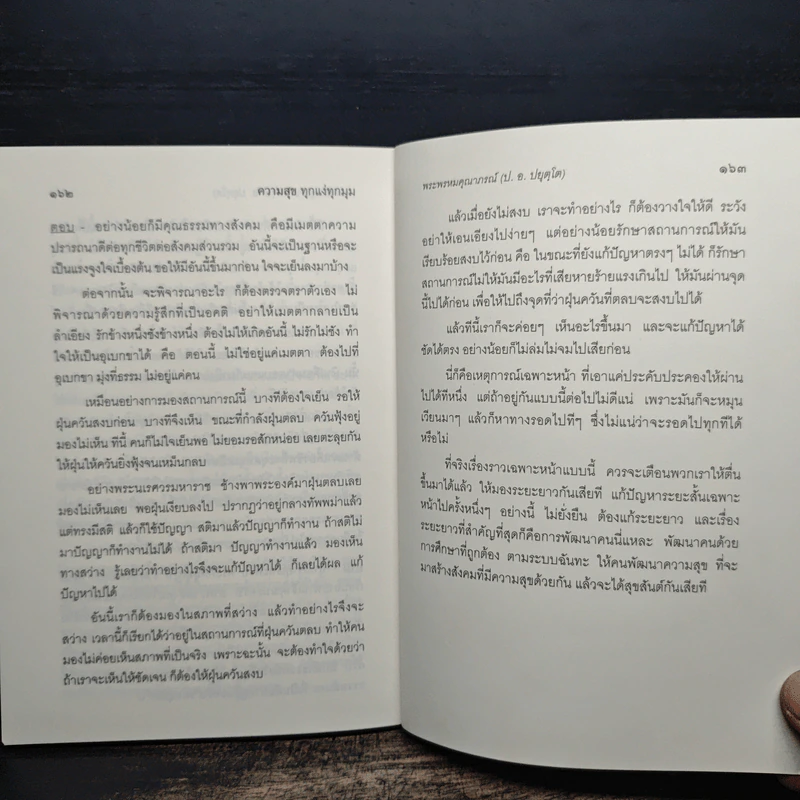 ๑๖๒
ความสุข ทุกแง่ทุกมุม
ตอบ - อย่างน้อยก็มีคุณธรรมทางสังคม คือมีเมตตาความ
ปรารถนาดีต่อทุกชีวิตต่อสังคมส่วนรวม อันนี้จะเป็นฐานหรือจะ
เป็นแรงจูงใจเบื้องต้น ขอให้มีอันนี้ขึ้นมาก่อน ใจจะเย็นลงมาบ้าง
ต่อจากนั้น จะพิจารณาอะไร ก็ต้องตรวจตราตัวเอง ไม่
พิจารณาด้วยความรู้สึกที่เป็นอคติ อย่าให้เมตตากลายเป็น
ลำเอียง รักข้างหนึ่งชังข้างหนึ่ง ต้องไม่ให้เกิดอันนี้ ไม่รักไม่ชัง ทำ
ใจให้เป็นอุเบกขาได้ คือ ตอนนี้ ไม่ใช่อยู่แค่เมตตา ต้องไปที่
อุเบกขา มุ่งที่ธรรม ไม่อยู่แค่คน
เหมือนอย่างการมองสถานการณ์นี้ บางทีต้องใจเย็น รอให้
ฝุ่นควันสงบก่อน บางทีจึงเห็น ขณะที่กำลังฝุ่นตลบ ควันฟุ้งอยู่
มองไม่เห็น ทีนี้ คนก็ไม่ใจเย็นพอ ไม่ยอมรอสักหน่อย เลยตะลุยกัน
ให้ฝุ่นให้ควันยิ่งฟุ้งจนเหม็นกลบ
อย่างพระนเรศวรมหาราช ช้างพาพระองค์มาฝุ่นตลบเลย
มองไม่เห็นเลย พอฝุ่นเงียบลงไป ปรากฏว่าอยู่กลางทัพพม่าแล้ว
แต่ทรงมีสติ แล้วก็ใช้ปัญญา สติมาแล้วปัญญาก็ทำงาน ถ้าสติไม่
มาปัญญาก็ทำงานไม่ได้ ถ้าสติมา ปัญญาทำงานแล้ว มองเห็น
ทางสว่าง รู้เลยว่าทำอย่างไรจึงจะแก้ปัญหาได้ ก็เลยได้ผล แก้
ปัญหาไปได้
อันนี้เราก็ต้องมองในสภาพที่สว่าง แล้วทำอย่างไรจึงจะ
สว่าง เวลานี้ก็เรียกได้ว่าอยู่ในสถานการณ์ที่ฝุ่นควันตลบ ทำให้คน
มองไม่ค่อยเห็นสภาพที่เป็นจริง เพราะฉะนั้น จะต้องทำใจด้วยว่า
ถ้าเราจะเห็นให้ชัดเจน ก็ต้องให้ฝุ่นควันสงบ
พระพรหมคุณาภรณ์ (ป. อ. ปยุตฺโต)
๑๖๓
แล้วเมื่อยังไม่สงบ เราจะทำอย่างไร ก็ต้องวางใจให้ดี ระวัง
อย่าให้เอนเอียงไปง่ายๆ แต่อย่างน้อยรักษาสถานการณ์ให้มัน
เรียบร้อยสงบไว้ก่อน คือ ในขณะที่ยังแก้ปัญหาตรงๆ ไม่ได้ ก็รักษา
สถานการณ์ไม่ให้มันมีอะไรที่เสียหายร้ายแรงเกินไป ให้มันผ่านจุด
นี้ไปได้ก่อน เพื่อให้ไปถึงจุดที่ว่าฝุ่นควันที่ตลบจะสงบไปได้
แล้วทีนี้เราก็จะค่อยๆ เห็นอะไรขึ้นมา และจะแก้ปัญหาได้
ชัดได้ตรง อย่างน้อยก็ไม่ล่มไม่จมไปเสียก่อน
นี่ก็คือเหตุการณ์เฉพาะหน้า ที่เอาแค่ประคับประคองให้ผ่าน
ไปได้ทีหนึ่ง แต่ถ้าอยู่กันแบบนี้ต่อไปไม่ดีแน่ เพราะมันก็จะหมุน
เวียนมาๆ แล้วก็หาทางรอดไปทีๆ ซึ่งไม่แน่ว่าจะรอดไปทุกทีได้
หรือไม่
ที่จริงเรื่องราวเฉพาะหน้าแบบนี้ ควรจะเตือนพวกเราให้ตื่น
ขึ้นมาได้แล้ว ให้มองระยะยาวกันเสียที แก้ปัญหาระยะสั้นเฉพาะ
หน้าไปครั้งหนึ่งๆ อย่างนี้ ไม่ยั่งยืน ต้องแก้ระยะยาว และเรื่อง
ระยะยาวที่สำคัญที่สุดก็คือการพัฒนาคนนี่แหละ พัฒนาคนด้วย
การศึกษาที่ถูกต้อง ตามระบบฉันทะ ให้คนพัฒนาความสุข ที่จะ
มาสร้างสังคมที่มีความสุขด้วยกัน แล้วจะได้สุขสันต์กันเสียที